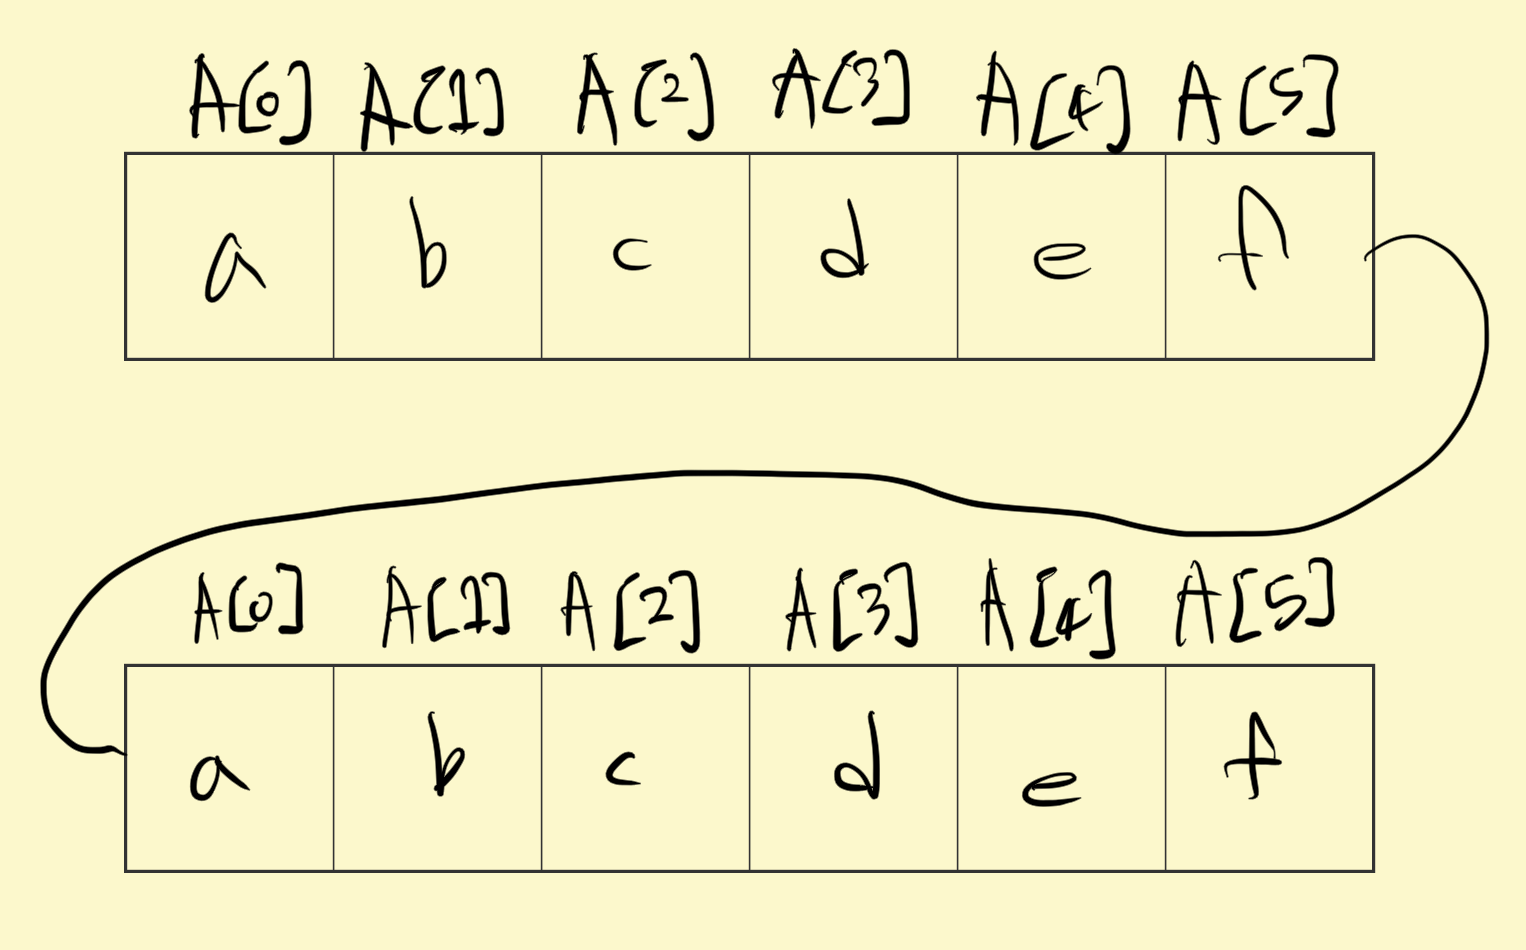 A[0] A[1] A[2] A[3] A[4] A[5]
a b c d e f
A[0] A[1] A[2] A[3] A[4] A[5]
a b c d e f